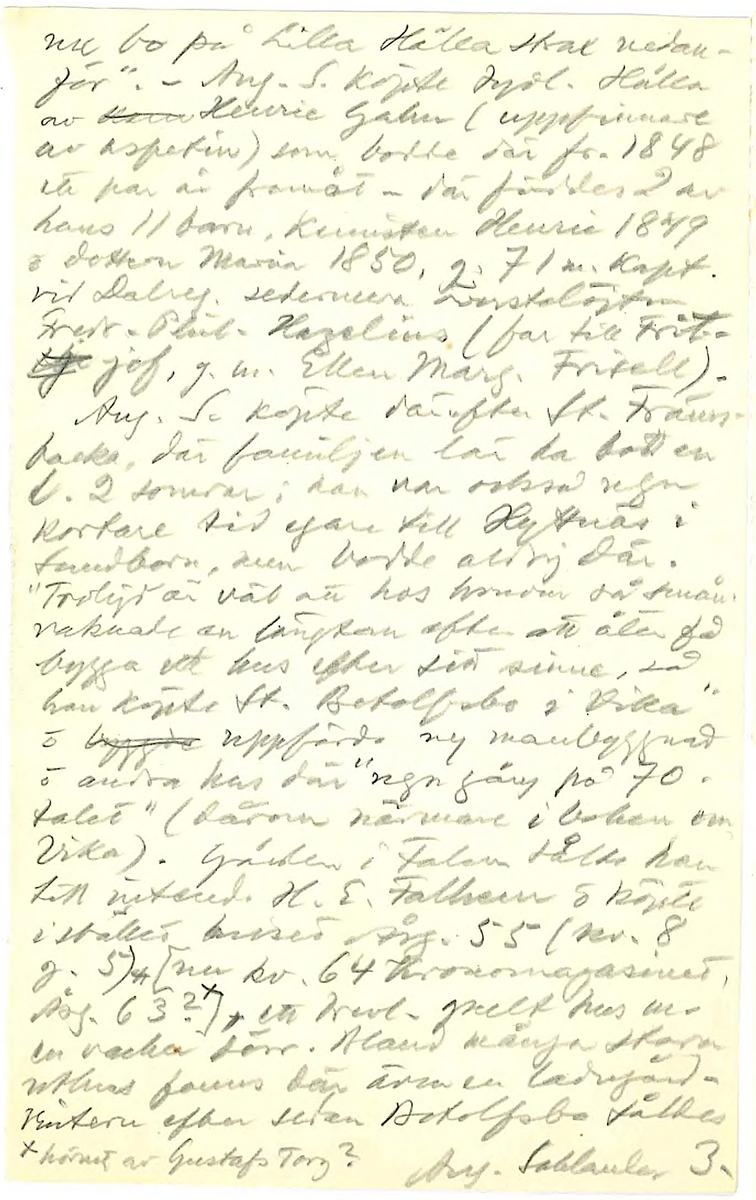 nu bo på Lilla Hälla strax nedan-
för". – Aug. S. köpte sydl. Hälla
av Henric Gahn (uppfinnare
av aspetin) som bodde där fr. 1848
ett par år framåt – där föddes 2 av
hans 11 barn, kemisten Henric 1849
o dottern Maria 1850, g. 71 m. Kapt.
vid Dalreg. sedermera överstelöjtn
Fredr. Phil. Hazelius (far till Frit-
jof, g. m. Ellen Marg. Frisell).
Aug. S. köpte därefter St. Främs-
backa, där familjen lär ha bott en
l. 2 somrar; han var också ngn
kortare tid egare till Hyttnäs i
Sundborn, men bodde aldrig där.
"Troligt är väl att hos honom så smån.
vaknade en längtan efter att åter få
bygga ett hus efter sitt sinne, så
han köpte St. Botolfsbo i Vika"
o byggde uppförde ny manbyggnad
o andra hus där "ngn gång på 70-
talet" (därom närmare i boken om
Vika). Gården i Falun sålde han
till intend. H. E. Fallhem o köpte
i stället huset Åsg. 55 (kv. 8
g. 5), [nu kv. 64 Kronomagasinet,
Åsg. 63?x], ett trevl. grelt hus m.
en vacker dörr. Bland många stora
uthus fanns där även en ladugård.
Vintern efter sedan Botolfsbo såldes
x hörnet av Gustafs Torg?
Aug. Sahlander 3.